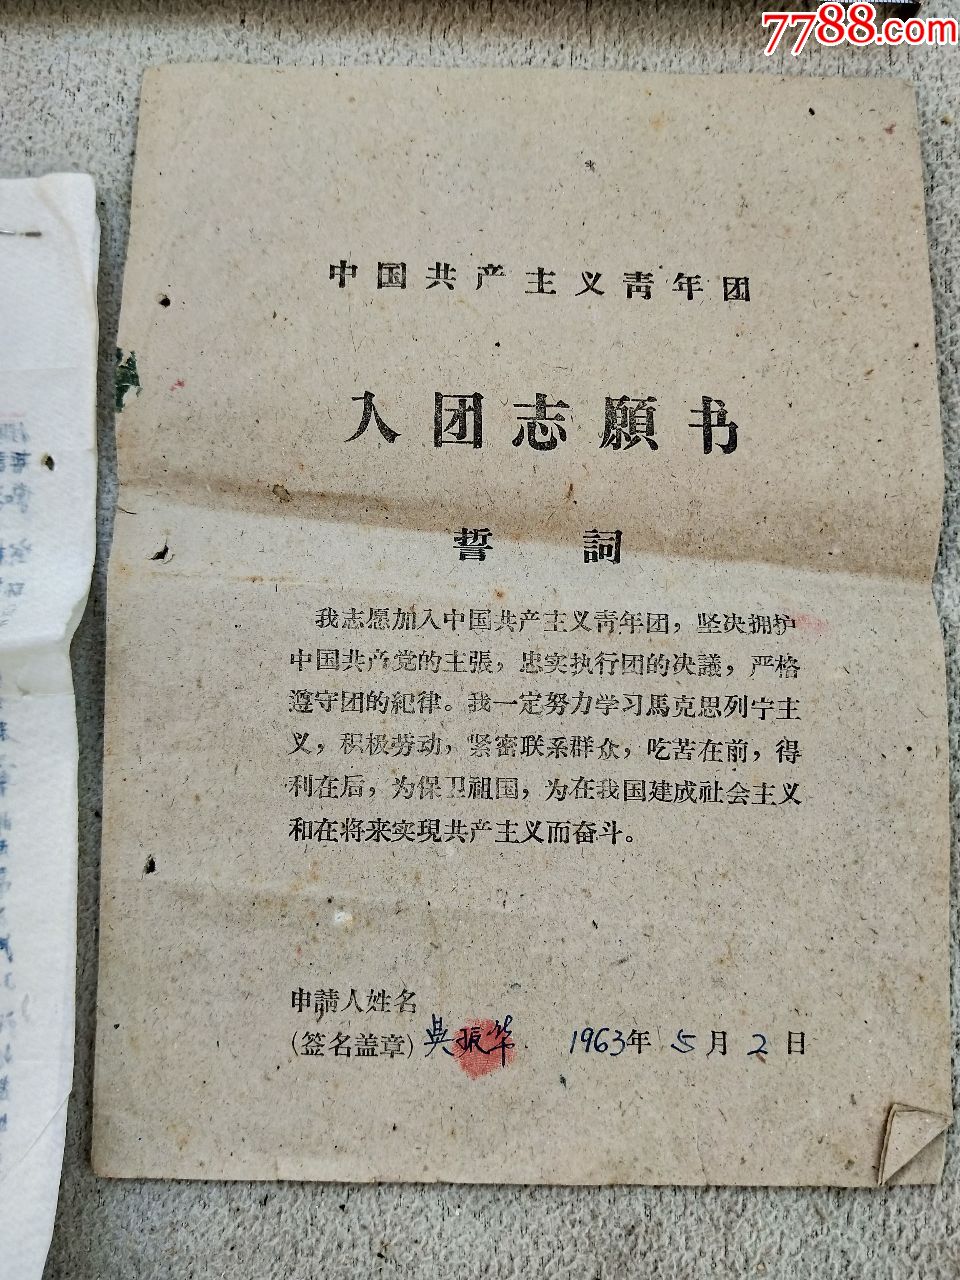 7788.com
中国共产主义青年团
入团志願书
誓詞
我志愿加入中国共产主义青年团，坚决拥护
中国共产党的主張，忠实执行团的决議，严格
遵守团的紀律。我一定努力学习馬克思列宁主
义，积极劳动，紧密联系群众，吃苦在前，得
利在后，为保卫祖国，为在我国建成社会主义
和在将来实現共产主义而奋斗。
申請人姓名
(签名盖章) 吳振华 1963年 5月 2日